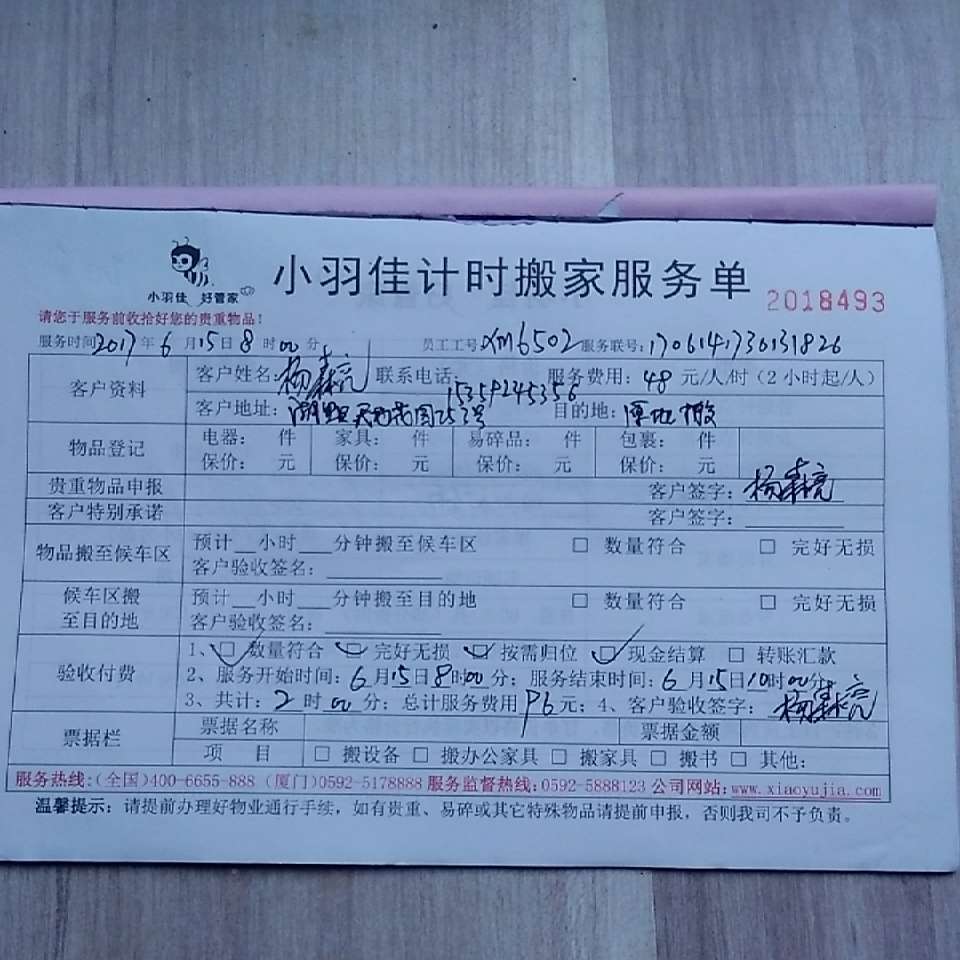 小羽佳 好管家
小羽佳计时搬家服务单 2018493
请您于服务前收拾好您的贵重物品！
服务时间2017年6月15日8时00分 员工工号xm6502 服务联号:1706141730131826
客户资料 客户姓名:杨森亮 联系电话:15359245356 服务费用:48元/人/时（2小时起/人）
客户地址:湖里 253号 目的地:原地搬
物品登记 电器: 件 家具: 件 易碎品: 件 包裹: 件
保价: 元 保价: 元 保价: 元 保价: 元
贵重物品申报 客户签字:杨森亮
客户特别承诺 客户签字:
物品搬至候车区 预计__小时___分钟搬至候车区 □ 数量符合 □ 完好无损
客户验收签名:
候车区搬至目的地 预计__小时___分钟搬至目的地 □ 数量符合 □ 完好无损
客户验收签名:
验收付费 1、☑数量符合 ☑完好无损 ☑按需归位 ☑现金结算 □ 转账汇款
2、服务开始时间:6月15日8时00分；服务结束时间:6月15日10时00分；
3、共计:2时00分；总计服务费用96元；4、客户验收签字:杨森亮
票据栏 票据名称 票据金额
项 目 □ 搬设备 □ 搬办公家具 □ 搬家具 □ 搬书 □ 其他:
服务热线:(全国)400-6655-888 (厦门)0592-5178888 服务监督热线:0592-5888123 公司网站:www.xiaoyujia.com
温馨提示：请提前办理好物业通行手续，如有贵重、易碎或其它特殊物品请提前申报，否则我司不予负责。